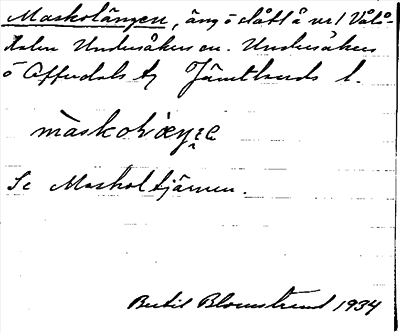 Maskolängen, äng ö slått å vid Vålå-
dalen Undersåkers sn. Undersåkers
o Offerdals tg Jämtlands l.
màskoläŋ̀ɛn
Se Maskoltjärnen.
Bertil Blomstrand 1934